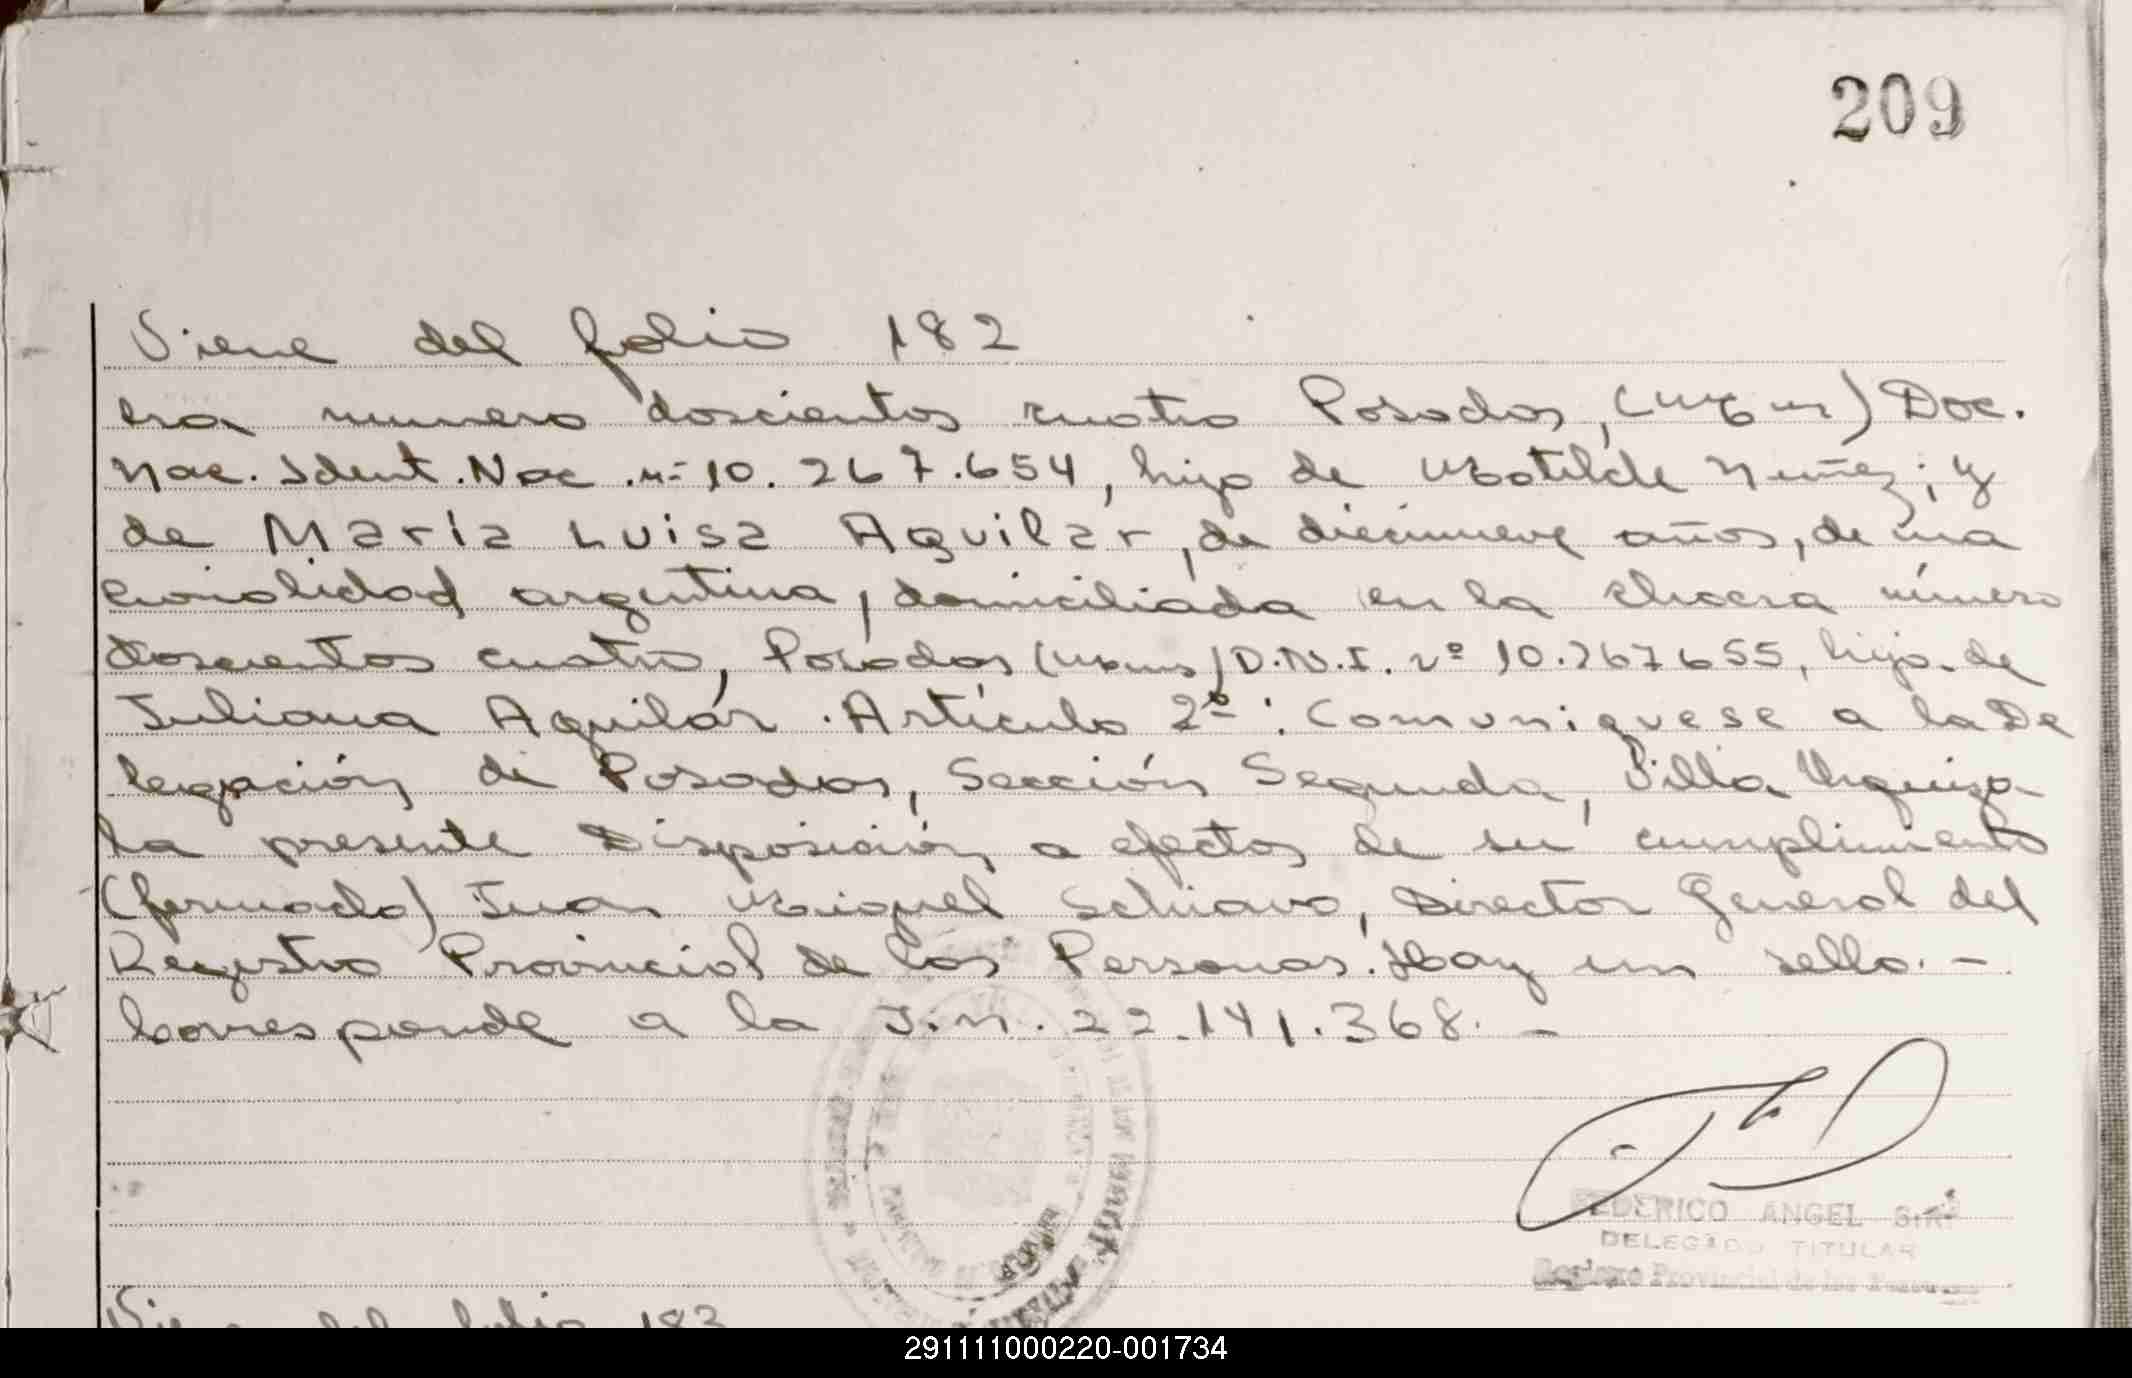 209
Viene del folio 182
cra numero doscientos cuatro Posadas, (Mnes) Doc.
Nac. Ident. Nac. nº 10.267.654, hijo de Matilde Nuñez; y
de María Luisa Aguilar, de diecinueve años, de na
cionalidad argentina, domiciliada en la chacra número
doscientos cuatro, Posadas (Mnes) D.N.I. nº 10.267655, hija de
Juliana Aguilár. Artículo 2º: Comuniquese a la De
legación de Posadas, Sección Segunda, Villa Urquiza
la presente Disposición a efectos de su cumplimiento
(firmado) Juan Miguel Schiavo, Director General del
Registro Provincial de las Personas. Hay un sello. -
Corresponde a la I.N. 22.141.368. -
FEDERICO ANGEL
DELEGADO TITULAR
Registro Provincial de las Personas
Viene del folio 183
291111000220-001734